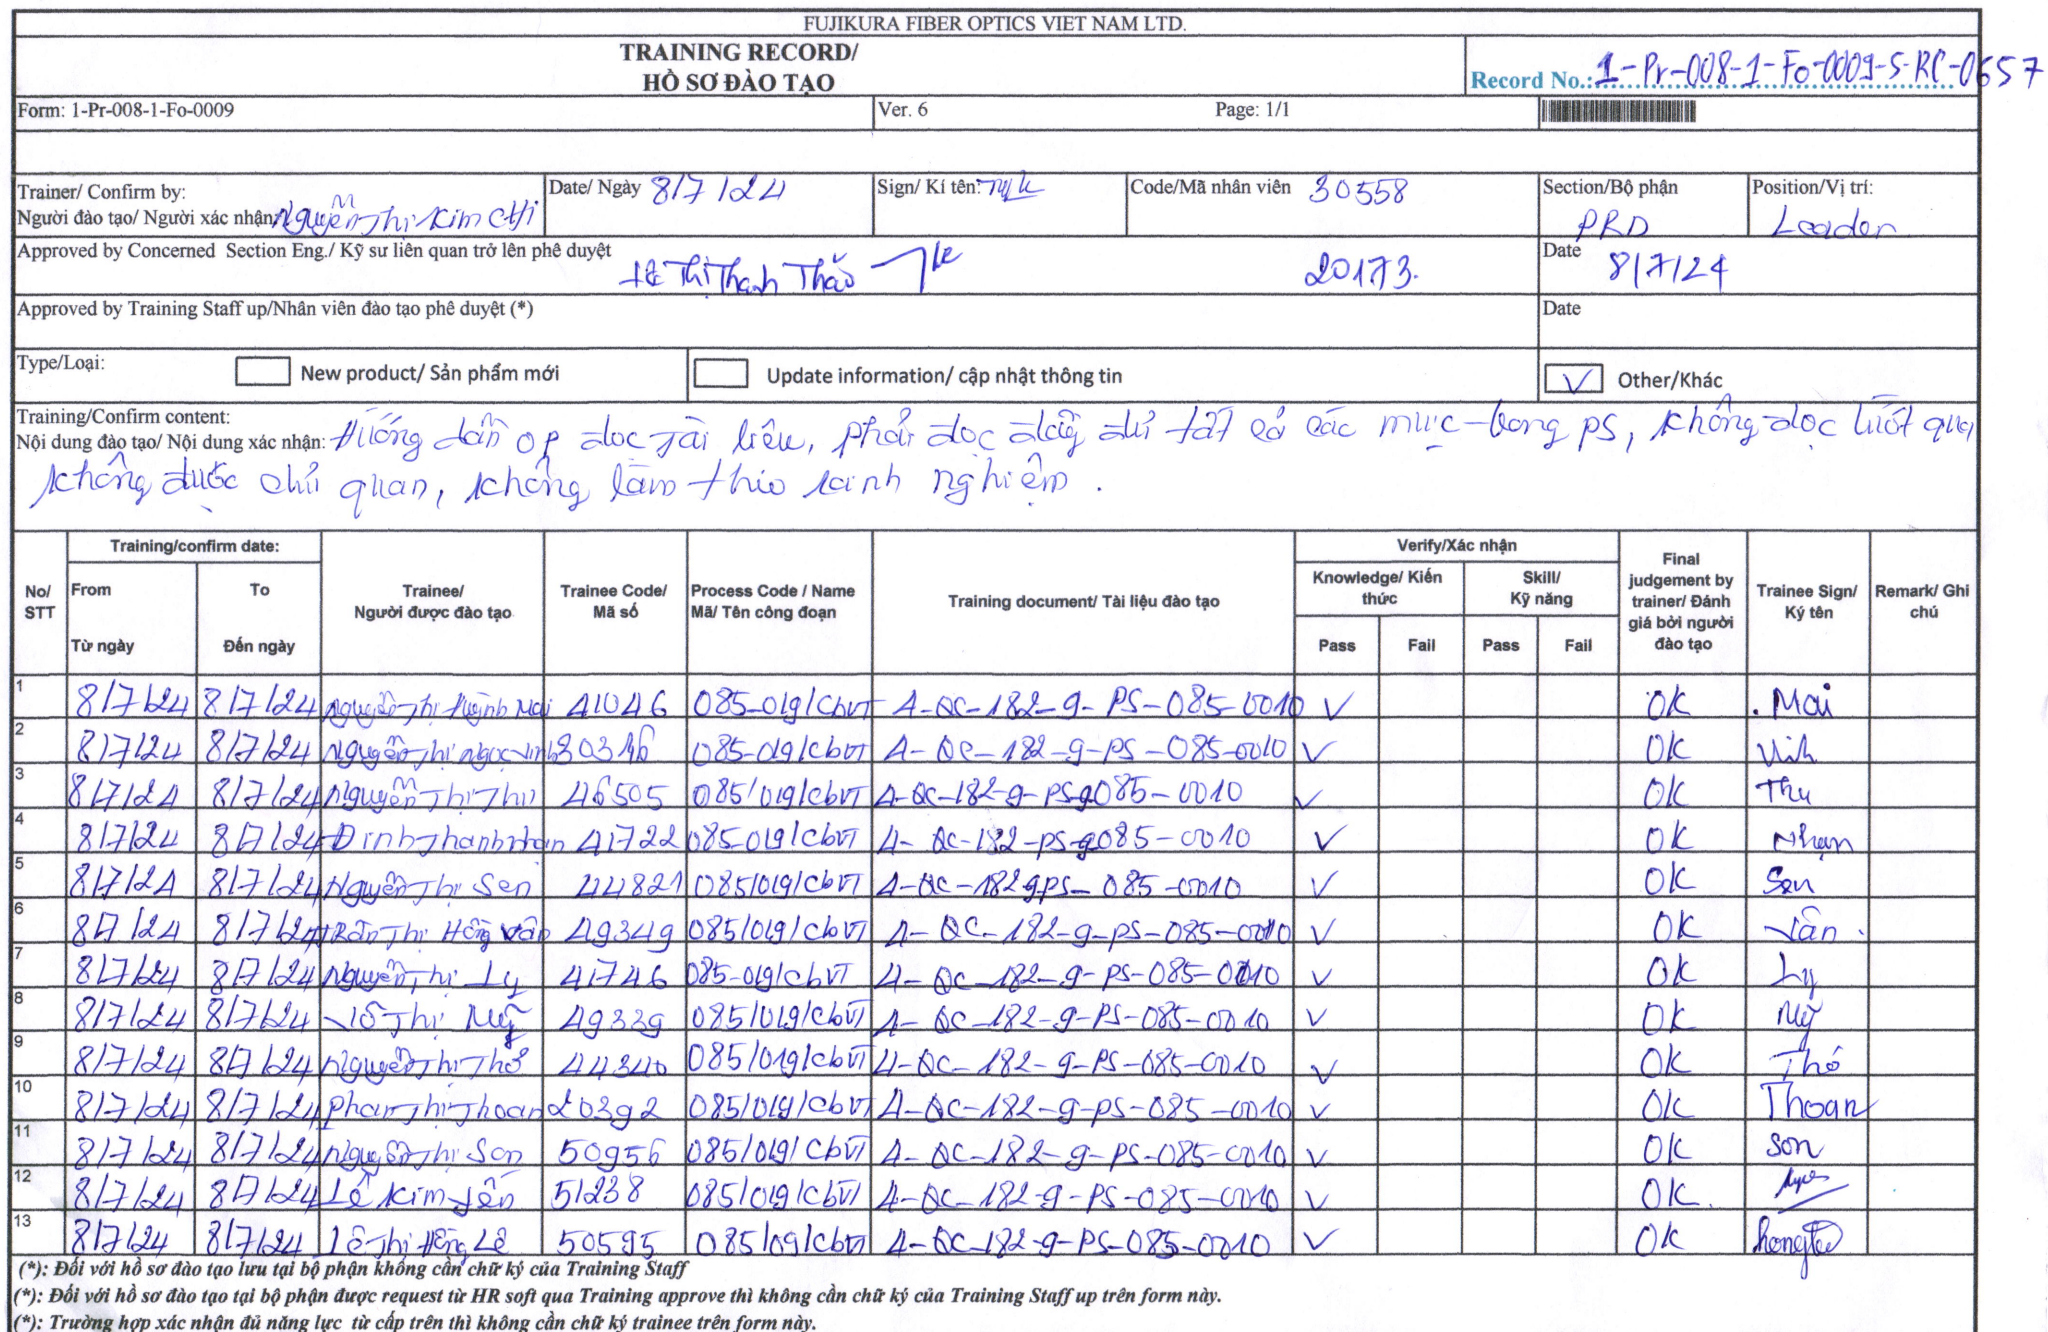 FUJIKURA FIBER OPTICS VIET NAM LTD.
TRAINING RECORD/
HỒ SƠ ĐÀO TẠO
Record No.: 1-Pr-008-1-Fo-0009-S-RC-0657
Form: 1-Pr-008-1-Fo-0009 Ver. 6 Page: 1/1
Trainer/ Confirm by: Date/ Ngày 8/7/24 Sign/ Kí tên: Code/Mã nhân viên 30558 Section/Bộ phận Position/Vị trí:
Người đào tạo/ Người xác nhận Nguyễn Thị Kim Chi PRD Leader
Approved by Concerned Section Eng./ Kỹ sư liên quan trở lên phê duyệt Date
Lê Thị Thanh Thảo 20173. 8/7/24
Approved by Training Staff up/Nhân viên đào tạo phê duyệt (*) Date
Type/Loại: New product/ Sản phẩm mới Update information/ cập nhật thông tin Other/Khác
Training/Confirm content:
Nội dung đào tạo/ Nội dung xác nhận: Hướng dẫn op đọc tài liệu, phải đọc đầy đủ tất cả các mục trong ps, không đọc lướt qua
không được chủ quan, không làm theo kinh nghiệm.
No/ STT Training/confirm date: From Từ ngày To Đến ngày Trainee/ Người được đào tạo Trainee Code/ Mã số Process Code / Name Mã/ Tên công đoạn Training document/ Tài liệu đào tạo Verify/Xác nhận Knowledge/ Kiến thức Pass Fail Skill/ Kỹ năng Pass Fail Final judgement by trainer/ Đánh giá bởi người đào tạo Trainee Sign/ Ký tên Remark/ Ghi chú
1 8/7/24 8/7/24 Nguyễn Thị Huỳnh Mai 41046 085-019/CbVT 4-QC-182-9-PS-085-0010 ✓ OK Mai
2 8/7/24 8/7/24 Nguyễn Thị Ngọc Vinh 30346 085-019/CbVT 4-QC-182-9-PS-085-0010 ✓ OK Vinh
3 8/7/24 8/7/24 Nguyễn Thị Thu 46505 085/019/CbVT 4-QC-182-9-PS-085-0010 ✓ OK Thu
4 8/7/24 8/7/24 Đinh Thanh Nhạn 41722 085-019/CbVT 4-QC-182-PS-9085-0010 ✓ OK Nhạn
5 8/7/24 8/7/24 Nguyễn Thị Sen 44821 085/019/CbVT 4-QC-182 9PS-085-0010 ✓ OK Sen
6 8/7/24 8/7/24 Trần Thị Hồng Vân 49349 085/019/CbVT 4-QC-182-9-PS-085-0010 ✓ OK Vân
7 8/7/24 8/7/24 Nguyễn Thị Ly 41746 085-019/CbVT 4-QC-182-9-PS-085-0010 ✓ OK Ly
8 8/7/24 8/7/24 Võ Thị Mỹ 49339 085/019/CbVT 4-QC-182-9-PS-085-0010 ✓ OK Mỹ
9 8/7/24 8/7/24 Nguyễn Thị 44340 085/019/CbVT 4-QC-182-9-PS-085-0010 ✓ OK
10 8/7/24 8/7/24 Phan Thị Thoan 20392 085/019/CbVT 4-QC-182-9-PS-085-0010 ✓ OK Thoan
11 8/7/24 8/7/24 Nguyễn Thị Son 50956 085/019/CbVT 4-QC-182-9-PS-085-0010 ✓ OK Son
12 8/7/24 8/7/24 Lê Kim Yến 51238 085/019/CbVT 4-QC-182-9-PS-085-0010 ✓ OK.
13 8/7/24 8/7/24 Lê Thị Hồng Lê 50595 085/019/CbVT 4-QC-182-9-PS-085-0010 ✓ OK
(*): Đối với hồ sơ đào tạo lưu tại bộ phận không cần chữ ký của Training Staff
(*): Đối với hồ sơ đào tạo tại bộ phận được request từ HR soft qua Training approve thì không cần chữ ký của Training Staff up trên form này.
(*): Trường hợp xác nhận đủ năng lực từ cấp trên thì không cần chữ ký trainee trên form này.